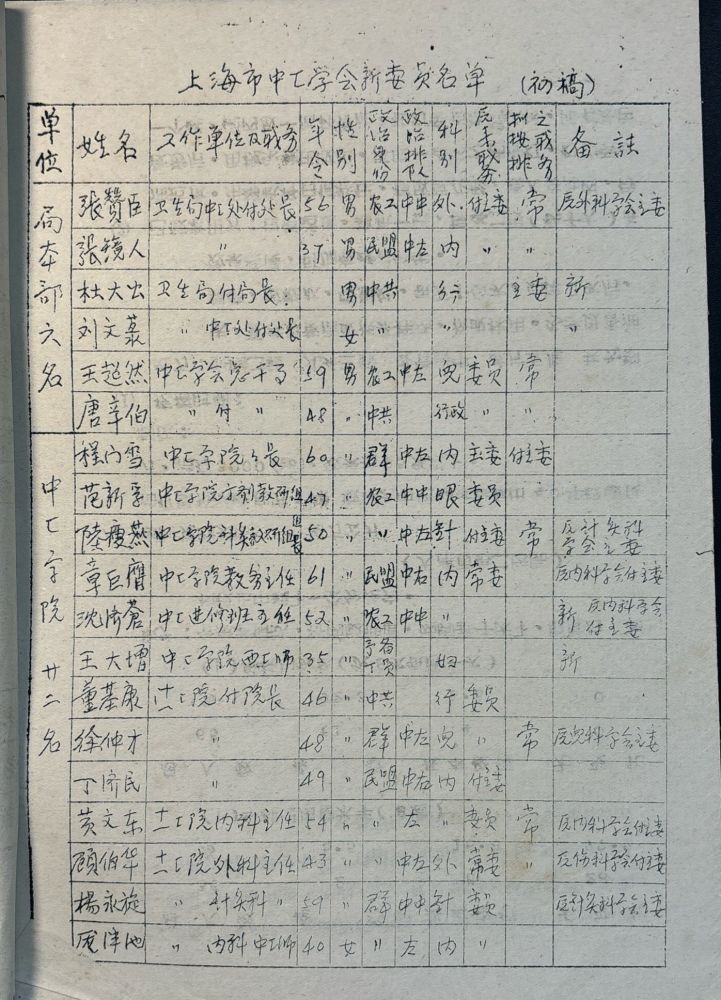 上海市中医学会新委员名单 (初稿)
单位 姓名 工作单位及职务 年令 性别 政治身份 政治排队 科别 原来职务 拟按排之职务 备註
局本部六名
張贊臣 卫生局中医处付处長 56 男 农工 中中 外 付主委 常 原外科学会主委
張鏡人 〃 37 男 民盟 中左 内 〃 〃
杜大公 卫生局付局長 男 中共 行 主委 新
刘文菉 〃 中医处付处长 女 〃 〃 〃
王超然 中医学会总干事 59 男 农工 中左 児 委员 常
唐辛伯 〃 付 〃 48 〃 中共 行政 〃 〃
中医学院 廿二名
程门雪 中医学院院長 60 〃 群 中左 内 主委 付主委
范新孚 中医学院方剂教研组 47 〃 农工 中中 眼 委员
陸瘦燕 中医学院针灸教研组組長 50 〃 〃 中左 針 付主委 常 原針灸科学会主委
章巨膺 中医学院教务主任 61 〃 民盟 中右 内 常委 原内科学会付主委
沈济蒼 中医進修班主任 52 〃 农工 中中 〃 新 原内科学会付主委
王大增 中医学院西医师 35 〃 予备党员 妇 新
董基康 十一医院付院長 46 〃 中共 行 委员
徐仲才 〃 48 〃 群 中左 児 〃 常 原児科学会主委
丁济民 〃 49 〃 民盟 中右 内 付主委
黄文东 十一医院内科主任 54 〃 〃 左 〃 委员 常 原内科学会付主委
顾伯华 十一医院外科主任 43 〃 〃 中左 外 常委 〃 原伤科学会付主委
楊永旋 〃 針灸科 〃 59 〃 群 中中 針 委員 原針灸科学会主委
庞泮池 〃 内科中医师 40 女 〃 左 内 〃